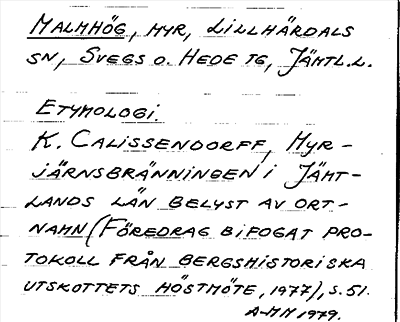 MALMHÖG, MYR, LILLHÄRDALS
SN, SVEGS O. HEDE TG, JÄMTL.L.
ETYMOLOGI.
K. CALISSENDORFF, MYR-
JÄRNSBRÄNNINGEN I JÄMT-
LANDS LÄN BELYST AV ORT-
NAMN (FÖREDRAG BIFOGAT PRO-
TOKOLL FRÅN BERGSHISTORISKA
UTSKOTTETS HÖSTMÖTE, 1977), S. 51.
A-MM 1979.